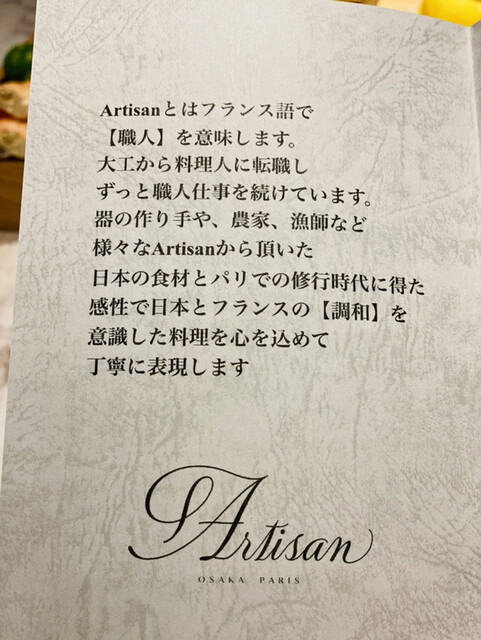 Artisanとはフランス語で
【職人】を意味します。
大工から料理人に転職し
ずっと職人仕事を続けています。
器の作り手や、農家、漁師など
様々なArtisanから頂いた
日本の食材とパリでの修行時代に得た
感性で日本とフランスの【調和】を
意識した料理を心を込めて
丁寧に表現します
L'Artisan
OSAKA PARIS